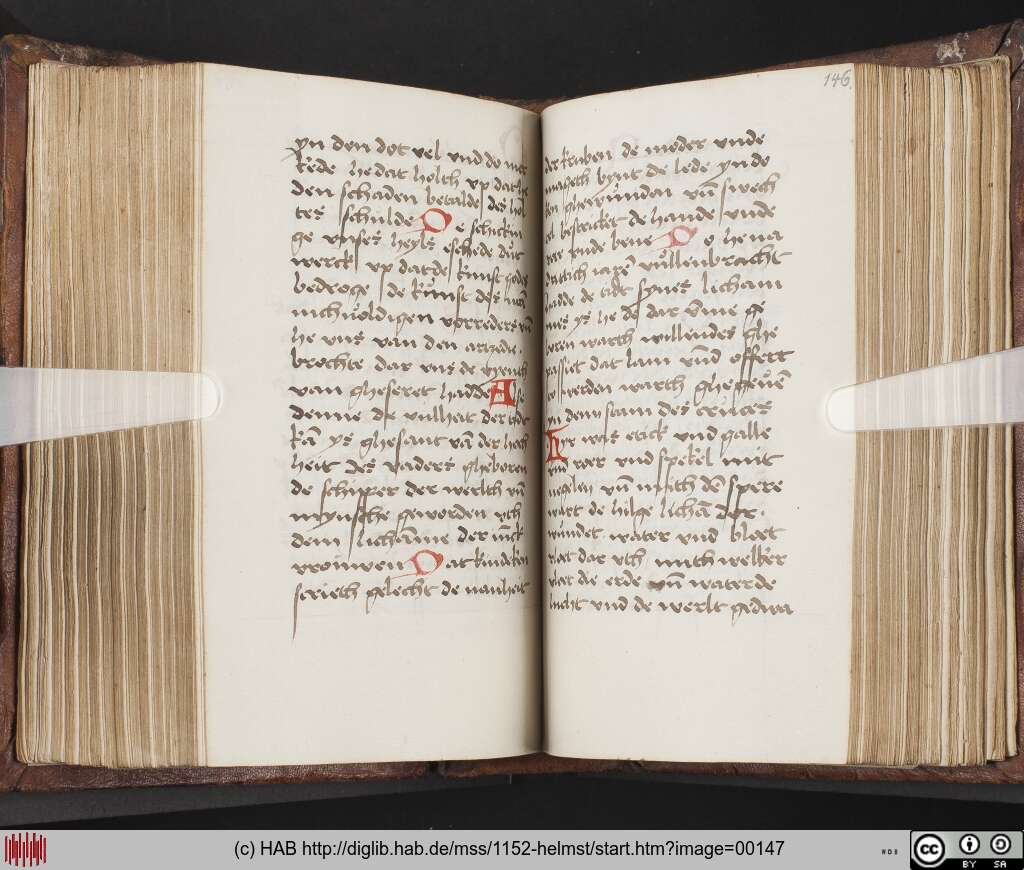 yn den dot vel vnd do mer
kede he dat holth vp dat he
den schaden betalde des hol
tes schulde De schickun
ge vnses heyls eschede dut
werck vp dat de kunst godes
bedroge de kunst des man
nichuoldigen vorreders vn
he vns van den artzedie
brochte dar vns de vyenth
van gheseret hadde Alse
denne de vulheit der tidt
kā ys ghesant vā der hoch
heit des vaders gheboren
de schipper der werlth vn
mynsche geworden vth
dem lichāme der iūck
vrouwen Dat kindeken
scrieth gelecht de nauheit
146
der kruben de moder vnde
maghet bynt de lede yn do
ken ghewunden vn swech
el bestricket de hande vnde
vote vnde bene Do he na
druttich iare vullenbracht
hadde de tidt synes licham
mes ys he de dar ynne ge
boren warth willendes the
passiet dat lam vnd offert
to werden warth ghegeuē
yn dem stam des cruces
Hyr was etick vnd galle
vnd roer vnd spekel mit
negelen vn mith dē spere
wart de hilge lichā dor
wundet water vnd bloet
vlot dar vth mith welker
vlot die erde vn water de
lucht vnd de werlt gedwa
(c) HAB http://diglib.hab.de/mss/1152-helmst/start.htm?image=00147
WDB
cc
BY SA